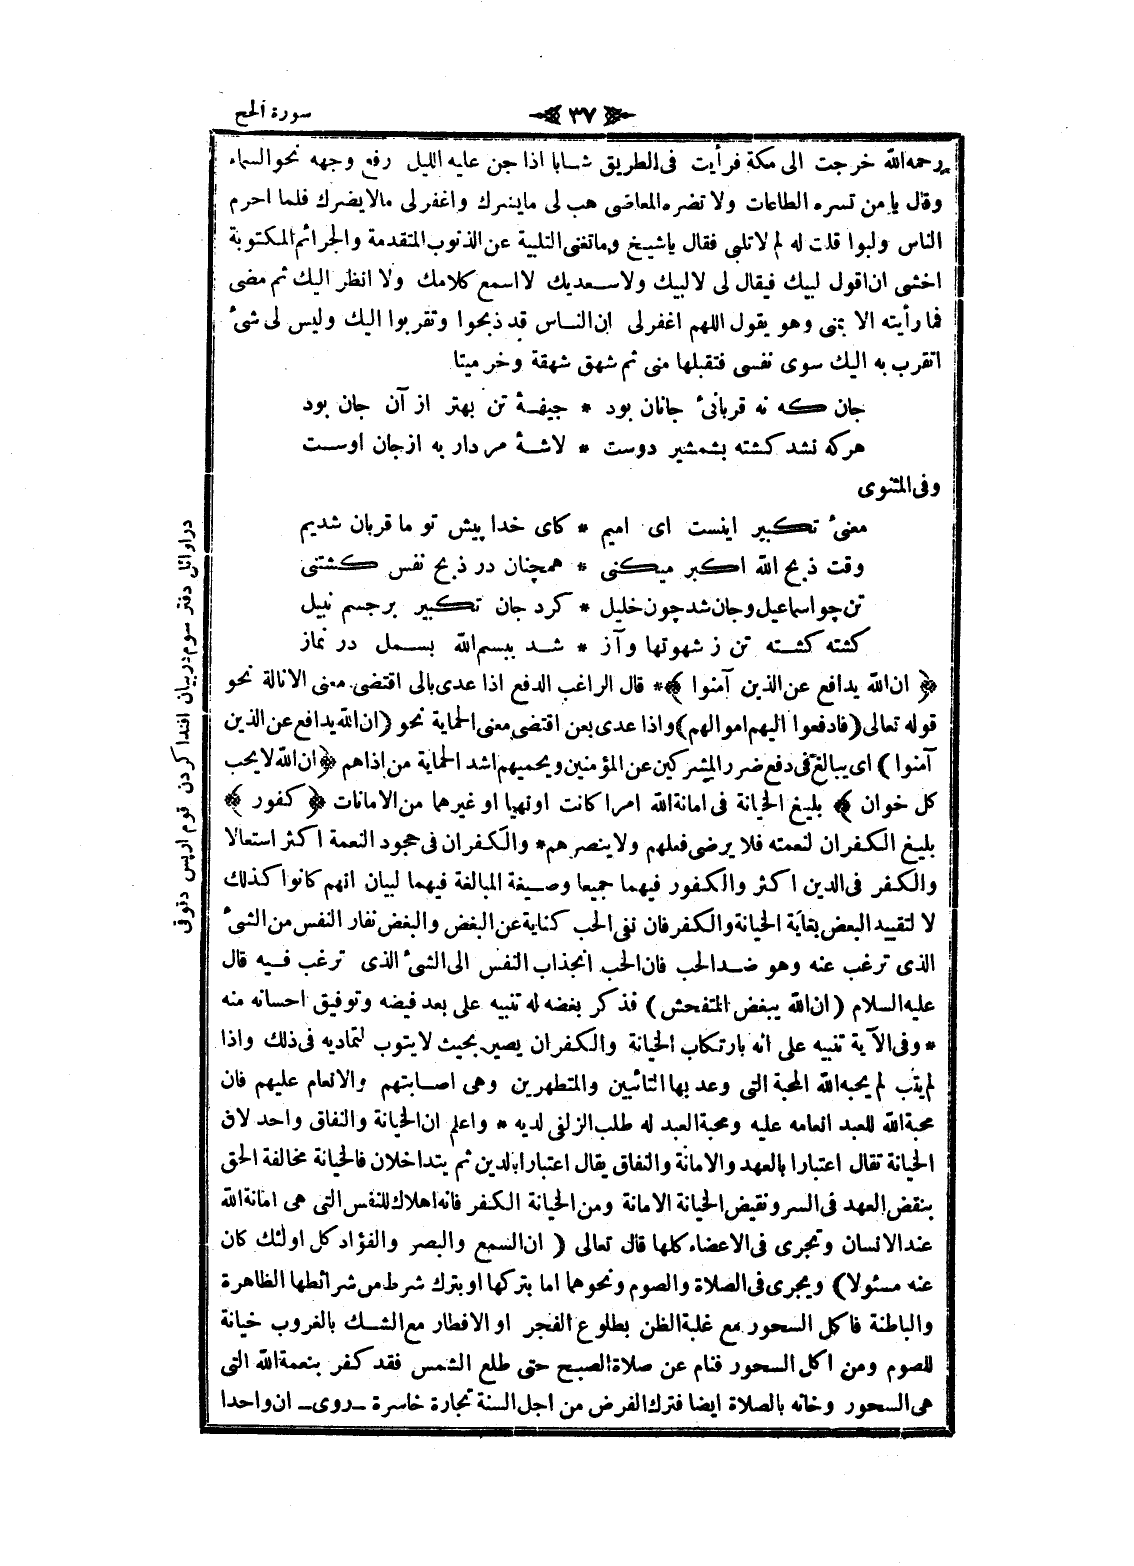 سورة الحج
﴿ ٣٧ ﴾
رحمه الله خرجت الى مكة فرأيت فى الطريق شابا اذا جن عليه الليل رفع وجهه نحو السماء
وقال يا من تسره الطاعات ولا تضره المعاصى هب لى ما يسرك واغفر لى مالا يضرك فلما احرم
الناس ولبوا قلت له لم لا تلبى فقال يا شيخ وما تغنى التلبية عن الذنوب المتقدمة والجرائم المكتوبة
اخشى ان اقول لبيك فيقال لى لا لبيك ولا سعديك لا اسمع كلامك ولا انظر اليك ثم مضى
فما رأيته الا بمنى وهو يقول اللهم اغفر لى ان الناس قد ذبحوا وتقربوا اليك وليس لى شئ
اتقرب به اليك سوى نفسى فتقبلها منى ثم شهق شهقة وخر ميتا
جان كه نه قربانئ جانان بود * جيفۀ تن بهتر از آن جان بود
هركه نشد كشته بشمشير دوست * لاشۀ مردار به ازجان اوست
وفى المثنوى
معنئ تكبير اينست اى اميم * كاى خدا پيش تو ما قربان شديم
وقت ذبح الله اكبر ميكنى * همچنان در ذبح نفس كشتنى
تن چو اسماعيل وجان شد چون خليل * كرد جان تكبير برجسم نبيل
كشته كشته تن ز شهوتها وآز * شد ببسم الله بسمل در نماز
﴿ ان الله يدافع عن الذين آمنوا ﴾ * قال الراغب الدفع اذا عدى بالى اقتضى معنى الانالة نحو
قوله تعالى (فادفعوا اليهم اموالهم) واذا عدى بعن اقتضى معنى الحماية نحو (ان الله يدافع عن الذين
آمنوا) اى يبالغ فى دفع ضرر المشركين عن المؤمنين ويحميهم اشد الحماية من اذاهم ﴿ ان الله لا يحب
كل خوان ﴾ بليغ الخيانة فى امانة الله امرا كانت او نهيا او غيرهما من الامانات ﴿ كفور ﴾
بليغ الكفران لنعمته فلا يرضى فعلهم ولا ينصرهم * والكفران فى جحود النعمة اكثر استعمالا
والكفر فى الدين اكثر والكفور فيهما جميعا وصيغة المبالغة فيهما لبيان انهم كانوا كذلك
لا لتقييد البعض بغاية الخيانة والكفر فان نفى الحب كناية عن البغض والبغض نفار النفس من الشئ
الذى ترغب عنه وهو ضد الحب فان الحب انجذاب النفس الى الشئ الذى ترغب فيه قال
عليه السلام (ان الله يبغض المتفحش) فذكر بغضه له تنبيه على بعد فيضه وتوفيق احسانه منه
* وفى الآية تنبيه على انه بارتكاب الخيانة والكفران يصير بحيث لا يتوب لتماديه فى ذلك واذا
لم يتب لم يحبه الله المحبة التى وعد بها التائبين والمتطهرين وهى اصابتهم والانعام عليهم فان
محبة الله للعبد انعامه عليه ومحبة العبد له طلب الزلفى لديه * واعلم ان الخيانة والنفاق واحد لان
الخيانة تقال اعتبارا بالعهد والامانة والنفاق يقال اعتبارا بالدين ثم يتداخلان فالخيانة مخالفة الحق
بنقض العهد فى السر ونقيض الخيانة الامانة ومن الخيانة الكفر فانه اهلاك للنفس التى هى امانة الله
عند الانسان وتجرى فى الاعضاء كلها قال تعالى ( ان السمع والبصر والفؤاد كل اولئك كان
عنه مسئولا) ويجرى فى الصلاة والصوم ونحوهما اما بتركها او بترك شرط من شرائطها الظاهرة
والباطنة فاكل السحور مع غلبة الظن بطلوع الفجر او الافطار مع الشك بالغروب خيانة
للصوم ومن اكل السحور فنام عن صلاة الصبح حتى طلع الشمس فقد كفر بنعمة الله التى
هى السحور وخانه بالصلاة ايضا فترك الفرض من اجل السنة تجارة خاسرة ـ روى ـ ان واحدا
در اوائل دفتر سوم در بيان اقتدا كردن قوم ازپس دقوقى